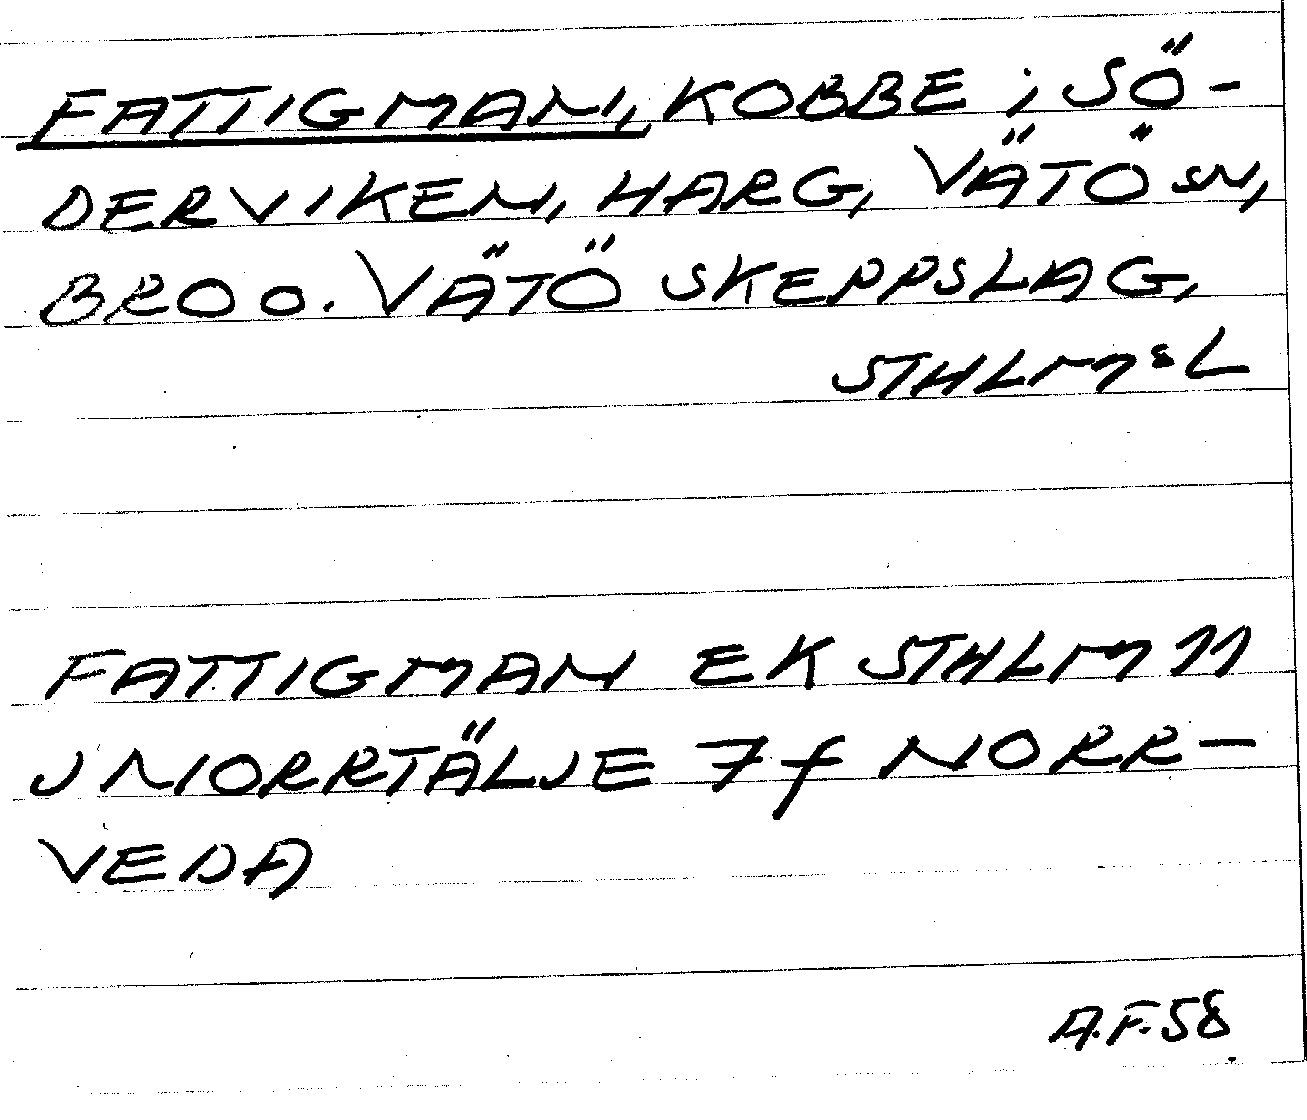 FATTIGMAN, KOBBE i SÖ-
DERVIKEN, HARG, VÄTÖ SN,
BRO O. VÄTÖ SKEPPSLAG,
STHLMS L
FATTIGMAN EK STHLM 11
J NORRTÄLJE 7f NORR-
VEDA
A.F. 58